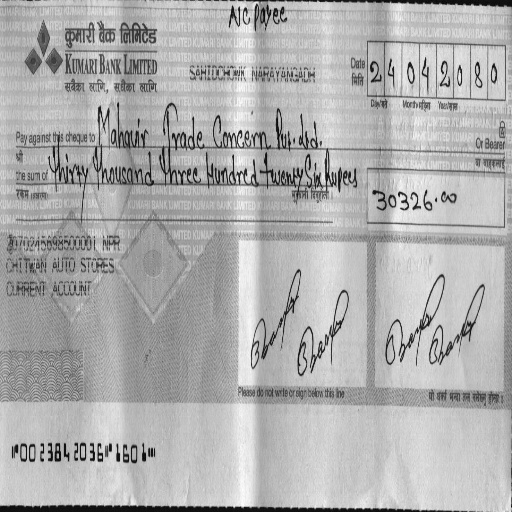 A/C Payee
कुमारी बैंक लिमिटेड
KUMARI BANK LIMITED
सबैका लागि, सधैंका लागि
SAHIDCHOWK NARAYANGADH
Date 24042080
मिति
Day/गते Month/महिना Year/साल
Pay against this cheque to Mahavir Trade Concern Pvt. Ltd.
Or Bearer
श्री
वा वाहकलाई
the sum of Thirty Thousand Three Hundred twenty Six Rupees
रकम (अक्षरमा)
भुक्तानी दिनुहोला
30326.00
NPR
CHITWAN AUTO STORES
CURRENT ACCOUNT
Please do not write or sign below this line
⑈0023842036⑈1601⑈